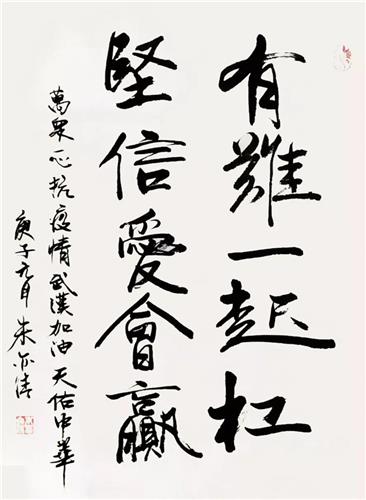 有難一起杠
堅信愛會贏
萬眾一心抗疫情武漢加油天佑中華
庚子元月朱亦